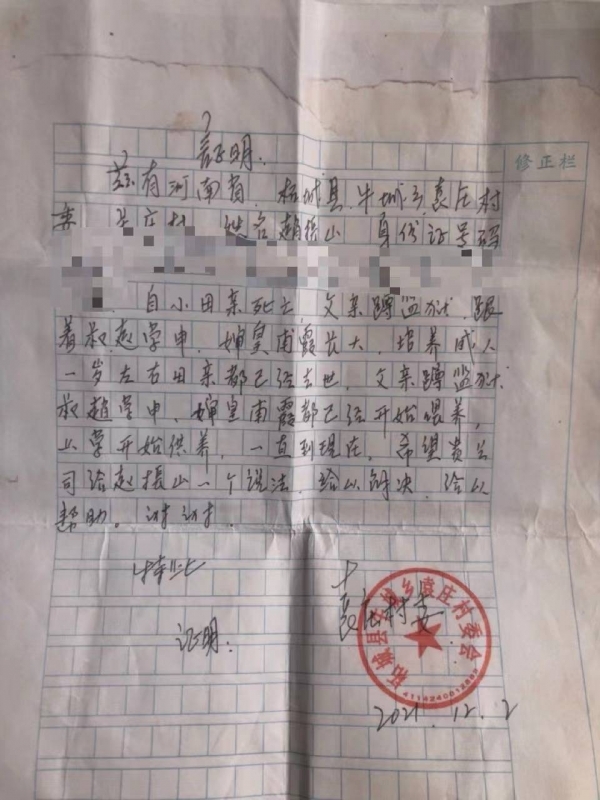 证明.
修正栏
兹有河南省,柘城县,牛城乡袁庄村
委 庄村 姓名赵振山 身份证号码
自小田亲死亡,父亲蹲监狱.跟
着叔赵学申.婶皇甫霞长大,培养成人
一岁左右田亲都已经去世,父亲蹲监狱.
叔赵学申、婶皇甫霞都已经开始喂养,
上学开始供养,一直到现在,希望贵公
司给赵振山一个说法,给以解决,给以
帮助。谢谢.
特此
证明.
袁庄村委
柘城县牛城乡袁庄村委会
2021.12.2